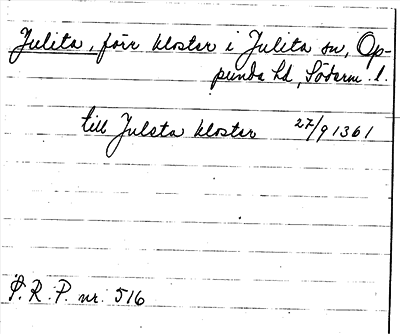 Julita, förr kloster i Julita sn, Op-
punda hd, Söderm. l.
till Julsta kloster 27/9 1361
S. R. P. nr. 516